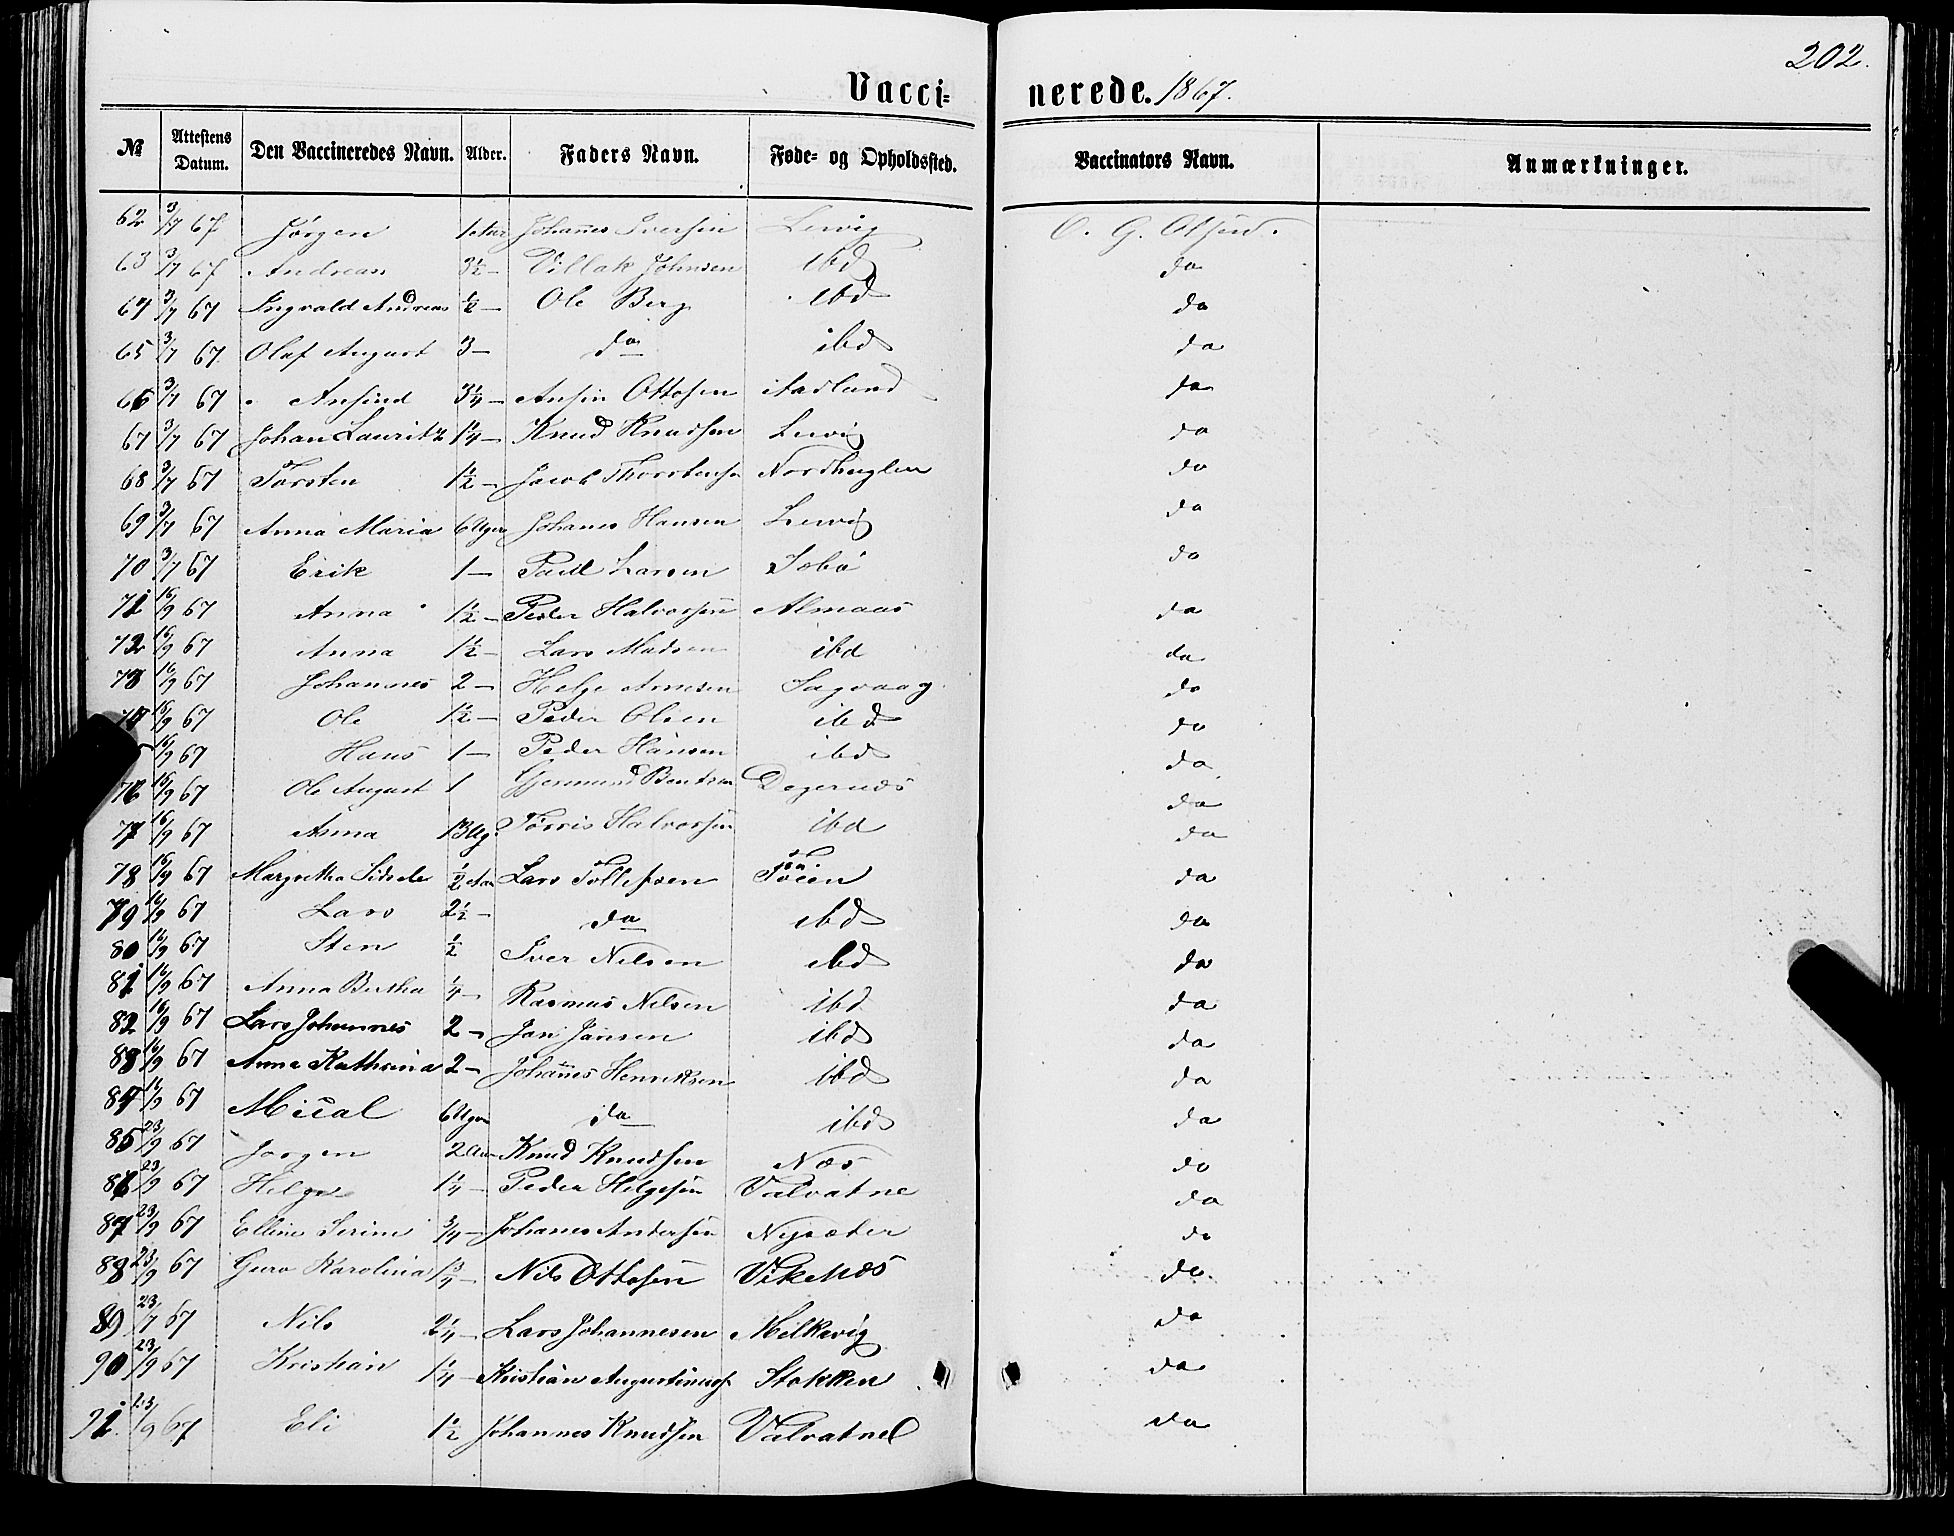 202.
Vacci= nerede. 1867.
№ Attestens Datum. Den Vaccineredes Navn. Alder. Faders Navn. Føde- og Opholdssted. Vaccinators Navn. Anmærkninger.
62 3/7 67 Jörgen 1 Aar Johannes Iversen Lervig O. G. Olsen.
63 3/7 67 Andreas 3½ — Villak Johnsen ibd do
64 3/7 67 Ingvald Andreas ½ — Ole Berg ibd do
65 3/7 67. Olaf August 3 — do ibd do
66 3/7 67 Ansind 3¼ — Ansin Ottosen do
67 3/7 67 Johan Lauritz 1¼ — Knud Knudsen Lervig do
68 3/7 67 Torsten 1½ — Jacob Thorstensen Nordhuglen do
69 3/7 67 Anna Maria 6 Uger Johanes Hansen Lervig do
70 3/7 67 Erik 1 — Paul Larsen Jobö do
71 16/9 67 Anna 1½ — Peder Halvorsen Almaas do
72 16/9 67 Anna 1½ — Lars Madsen ibd do
73 16/9 67 Johannes 2 — Helge Arnesen Sagvaag do
74 16/9 67 Ole 1½ — Peder Olsen ibd do
16/9 67 Hans 1 — Peder Hansen ibd do
76 16/9 67 Ole August 1 Gjermund Bentsen Degernæs do
77 16/9 67 Anna 13 Ug. Törris Halvorsen ibd do
78 16/9 67 Margretha Sidsele ½ Aar Lars Tollefsen Töien do
79 16/9 67 Lars 2½ — do ibd do
80 16/9 67 Sten ½ Iver Nilsen ibd do
81 16/9 67 Anna Bertha ¼ — Rasmus Nilsen ibd do
82 16/9 67 Lars Johannes 2 — Jan Jansen ibd do
83 16/9 67 Anna Kathrina 2 — Johannes Henriksen ibd do
84 16/9 67 Mical 6 Uger do ibd do
85 23/9 67 Jorgen 2 Aar Knud Knudsen Næs do
86 23/9 67 Helge 1¼ — Peder Helgesen Valvatne do
87 23/9 67 Elline Serine ¾ — Johanes Andersen Nysæter do
88 23/9 67 Guro Karolina 1¾ — Nils Ottosen Vikenæs do.
89 23/7 67 Nils 2¼ — Lars Johannesen Melkevig do
90 23/9 67 Kristian 1¼ — Kristian Augustinus Stokken do
91. 23/9 67 Eli 1½ Johannes Knudsen Valvatne do